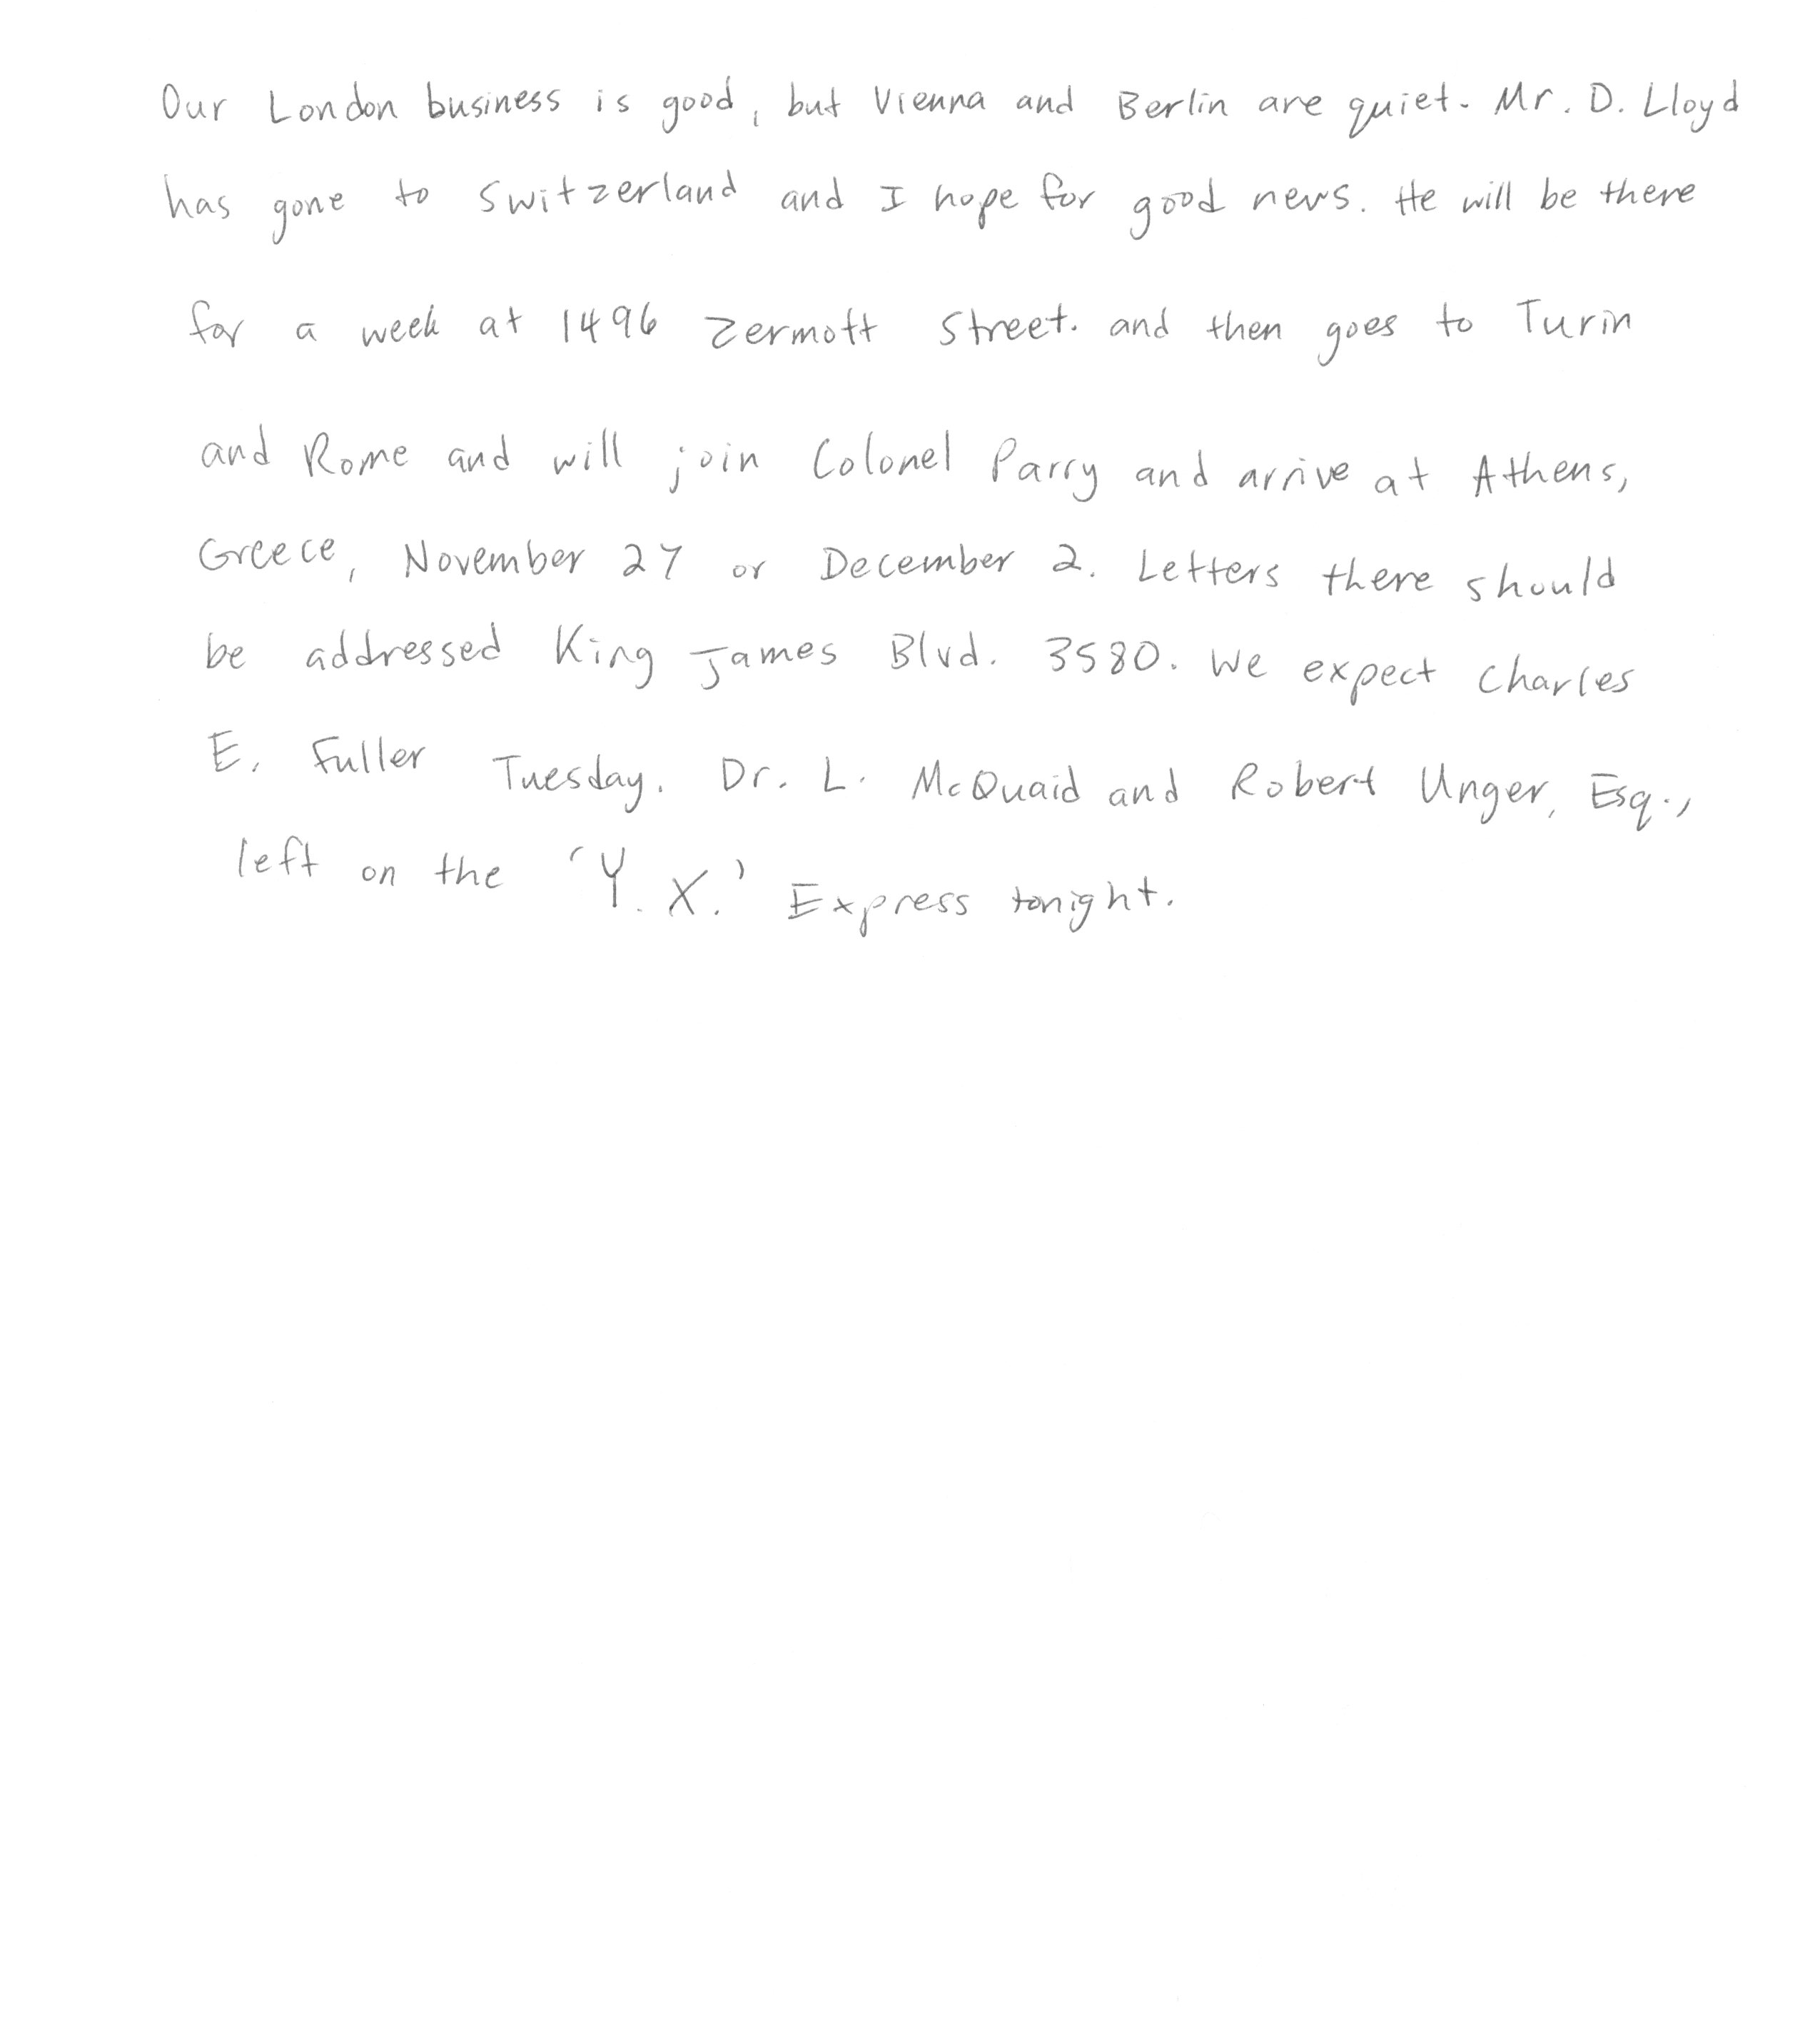 Our London business is good, but Vienna and Berlin are quiet. Mr. D. Lloyd
has gone to Switzerland and I hope for good news. He will be there
for a week at 1496 Zermott Street. and then goes to Turin
and Rome and will join Colonel Parry and arrive at Athens,
Greece, November 27 or December 2. Letters there should
be addressed King James Blvd. 3580. We expect Charles
E. Fuller Tuesday. Dr. L. McQuaid and Robert Unger, Esq.,
left on the 'Y. X.' Express tonight.